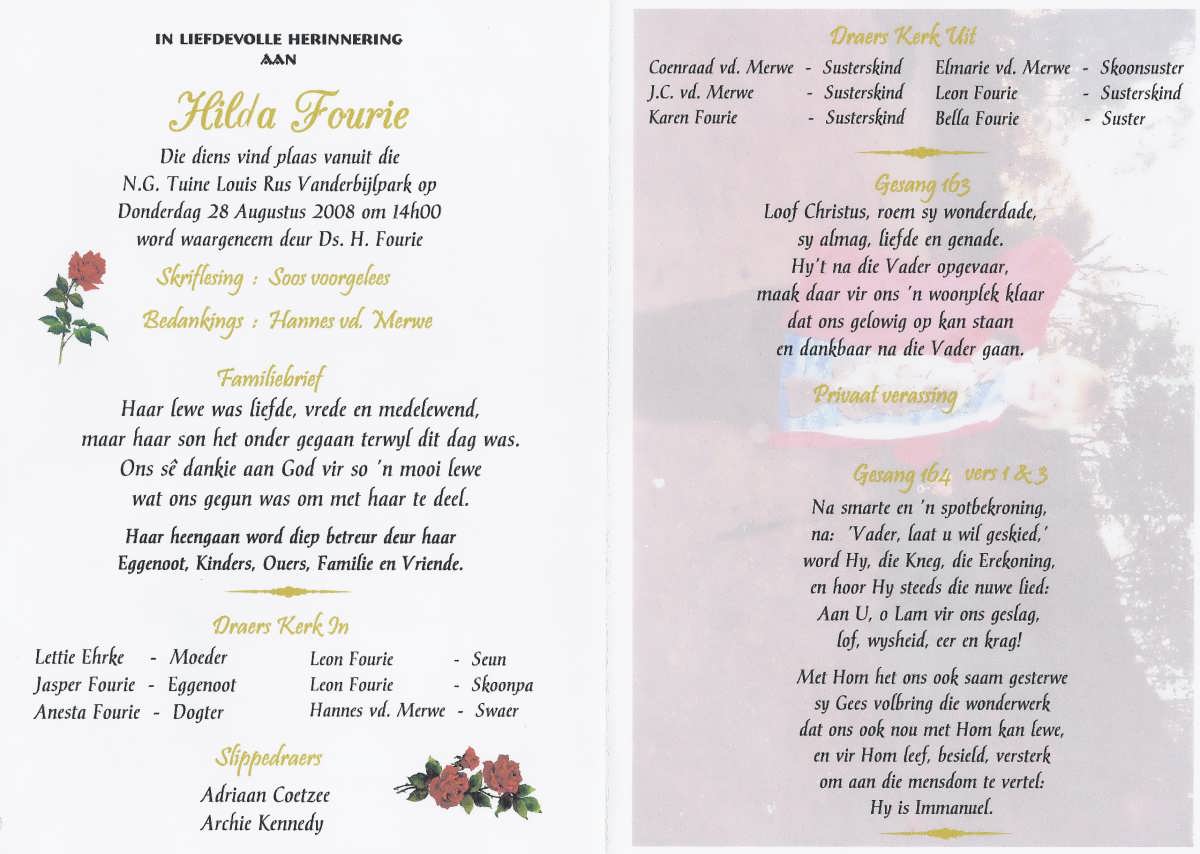 IN LIEFDEVOLLE HERINNERING
AAN
Hilda Fourie
Die diens vind plaas vanuit die
N.G. Tuine Louis Rus Vanderbijlpark op
Donderdag 28 Augustus 2008 om 14h00
word waargeneem deur Ds. H. Fourie
Skriflesing : Soos voorgelees
Bedankings : Hannes vd. Merwe
Familiebrief
Haar lewe was liefde, vrede en medelewend,
maar haar son het onder gegaan terwyl dit dag was.
Ons sê dankie aan God vir so 'n mooi lewe
wat ons gegun was om met haar te deel.
Haar heengaan word diep betreur deur haar
Eggenoot, Kinders, Ouers, Familie en Vriende.
Draers Kerk In
Lettie Ehrke - Moeder Leon Fourie - Seun
Jasper Fourie - Eggenoot Leon Fourie - Skoonpa
Anesta Fourie - Dogter Hannes vd. Merwe - Swaer
Slippedraers
Adriaan Coetzee
Archie Kennedy
Draers Kerk Uit
Coenraad vd. Merwe - Susterskind Elmarie vd. Merwe - Skoonsuster
J.C. vd. Merwe - Susterskind Leon Fourie - Susterskind
Karen Fourie - Susterskind Bella Fourie - Suster
Gesang 163
Loof Christus, roem sy wonderdade,
sy almag, liefde en genade.
Hy't na die Vader opgevaar,
maak daar vir ons 'n woonplek klaar
dat ons gelowig op kan staan
en dankbaar na die Vader gaan.
Privaat verassing
Gesang 164 vers 1 & 3
Na smarte en 'n spotbekroning,
na: 'Vader, laat u wil geskied,'
word Hy, die Kneg, die Erekoning,
en hoor Hy steeds die nuwe lied:
Aan U, o Lam vir ons geslag,
lof, wysheid, eer en krag!
Met Hom het ons ook saam gesterwe
sy Gees volbring die wonderwerk
dat ons ook nou met Hom kan lewe,
en vir Hom leef, besield, versterk
om aan die mensdom te vertel:
Hy is Immanuel.